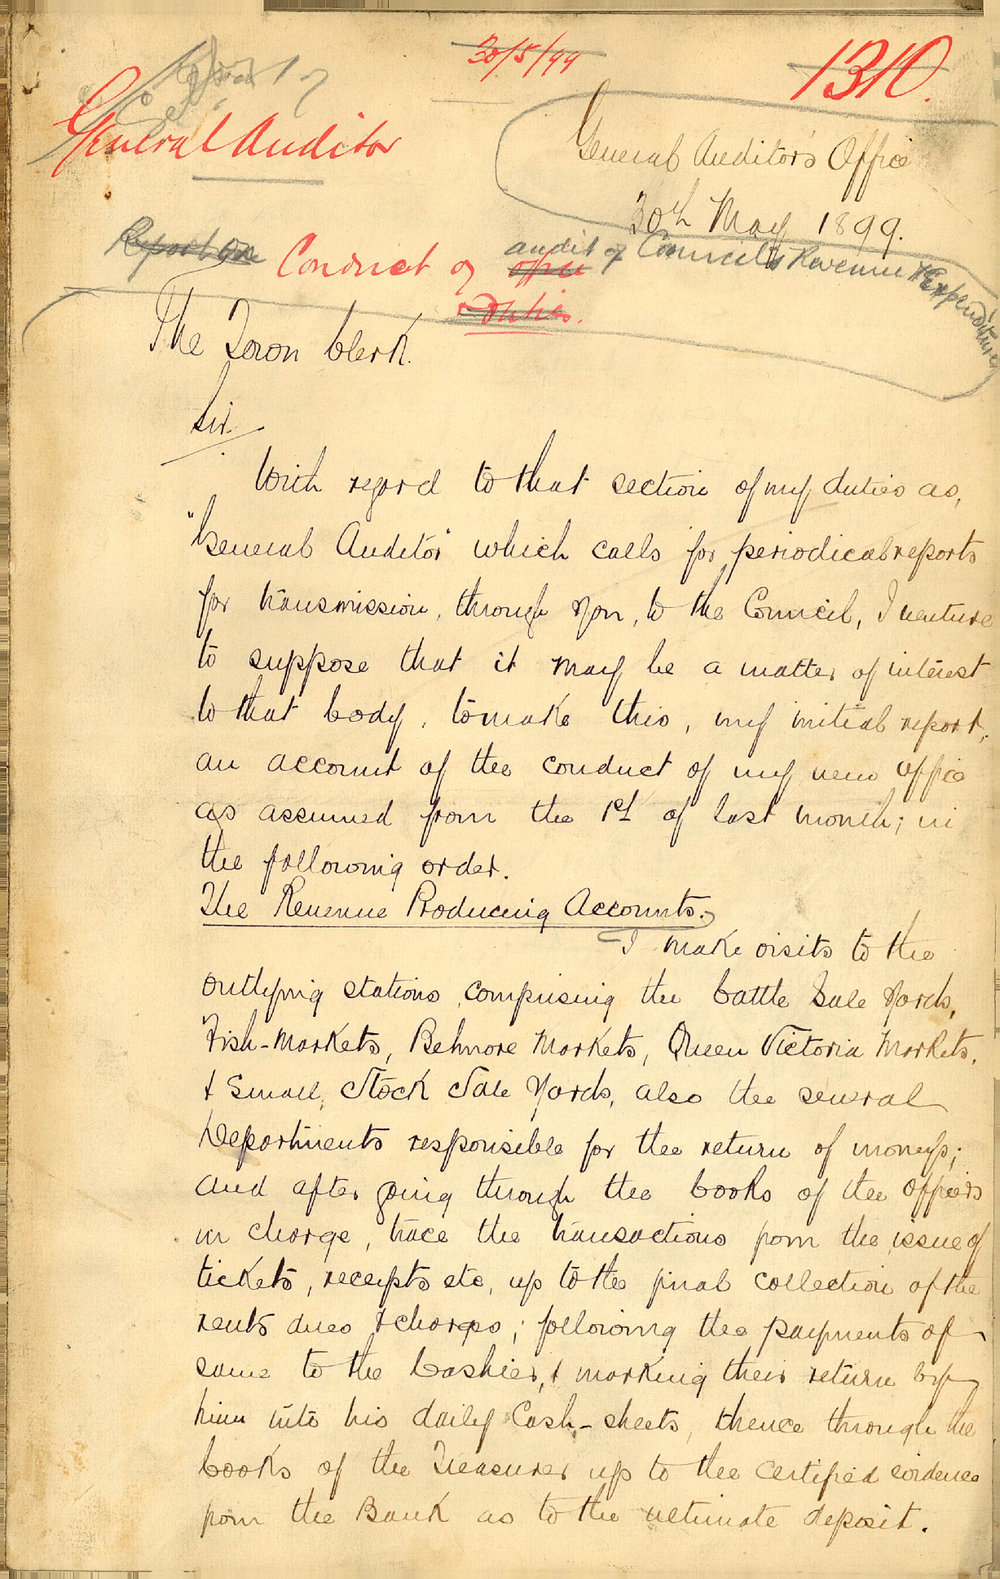 30/5/99
1310.
General Auditor
General Auditor's Office
30th May 1899.
Report on Conduct of office audit of Council's Revenue & Expenditure
& Duties.
The Town Clerk.
Sir.
With regard to that section of my duties as,
"General Auditor" which calls for periodical reports
for transmission, through you, to the Council, I venture
to suppose that it may be a matter of interest
to that body, to make this, my initial report,
an account of the conduct of my new office
as assumed from the 1st of last month; in
the following order.
The Revenue Producing Accounts.
I make visits to the
outlying stations comprising the Cattle Sale Yards,
Fish-Markets, Belmore Markets, Queen Victoria Markets,
& Small, Stock Sale Yards, also the several
Departments responsible for the return of moneys;
and after going through the books of the officers
in charge, trace the transactions from the issue of
tickets, receipts etc, up to the final collection of the
rents dues & charges; following the payments of
same to the Cashier, & marking their return by
him into his daily Cash-sheets, thence through the
books of the Treasurer up to the certified evidence
from the Bank as to the ultimate deposit.